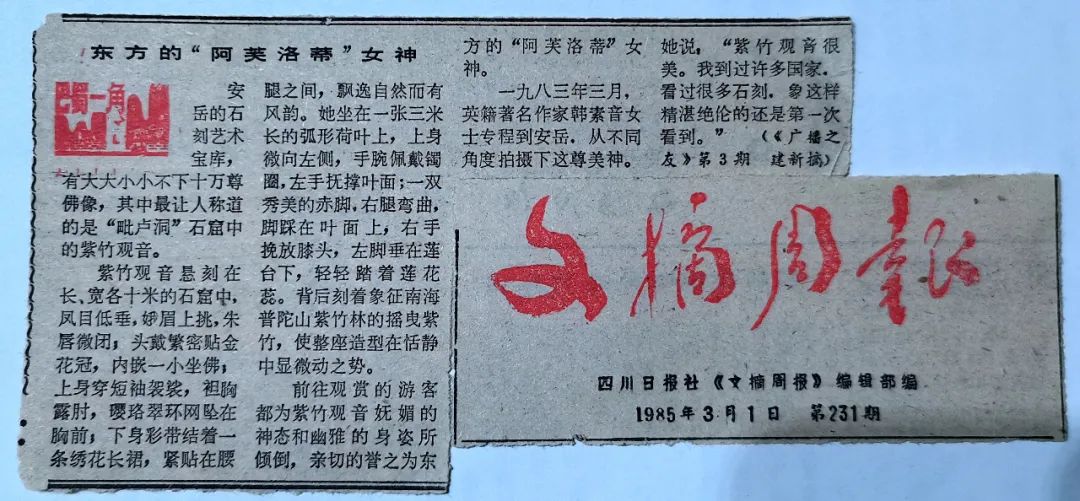 东方的“阿芙洛蒂”女神
安
岳的石
刻艺术
宝库，
有大大小小不下十万尊
佛像，其中最让人称道
的是“毗卢洞”石窟中
的紫竹观音。
紫竹观音悬刻在
长、宽各十米的石窟中，
凤目低垂，娥眉上挑，朱
唇微闭；头戴繁密贴金
花冠，内嵌一小坐佛；
上身穿短袖袈裟，袒胸
露肘，璎珞翠环网坠在
胸前；下身彩带结着一
条绣花长裙，紧贴在腰
腿之间，飘逸自然而有
风韵。她坐在一张三米
长的弧形荷叶上，上身
微向左侧，手腕佩戴镯
圈，左手抚撑叶面；一双
秀美的赤脚，右腿弯曲，
脚踩在叶面上，右手
挽放膝头，左脚垂在莲
台下，轻轻踏着莲花
蕊。背后刻着象征南海
普陀山紫竹林的摇曳紫
竹，使整座造型在恬静
中显微动之势。
前往观赏的游客
都为紫竹观音妩媚的
神态和幽雅的身姿所
倾倒，亲切的誉之为东
方的“阿芙洛蒂”女
神。
一九八三年三月，
英籍著名作家韩素音女
士专程到安岳，从不同
角度拍摄下这尊美神。
她说，“紫竹观音很
美。我到过许多国家，
看过很多石刻，象这样
精湛绝伦的还是第一次
看到。”（《广播之
友》第3期 建新摘）
文摘周報
四川日报社《文摘周报》编辑部编
1985年3月1日 第231期